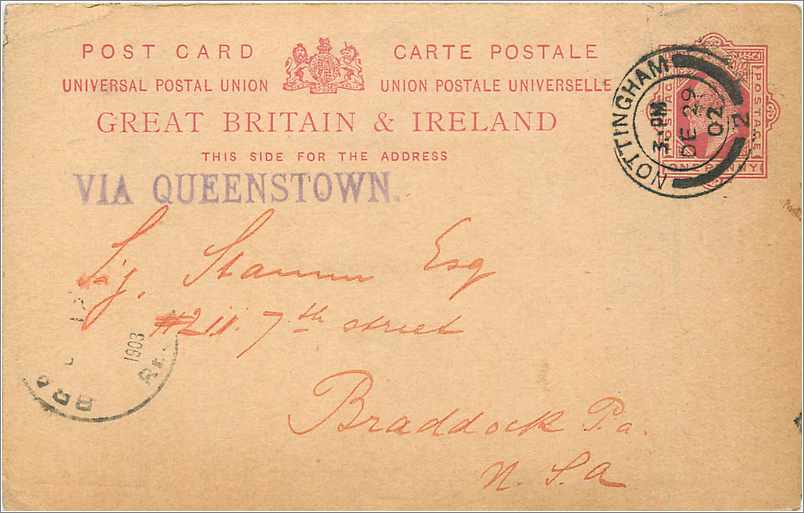 POST CARD CARTE POSTALE
UNIVERSAL POSTAL UNION UNION POSTALE UNIVERSELLE
GREAT BRITAIN & IRELAND
THIS SIDE FOR THE ADDRESS
VIA QUEENSTOWN.
NOTTINGHAM
3 PM
DE 29
02
2
POSTAGE
Esq
#211. 7th street
Braddock Pa.
U.S.a
1903